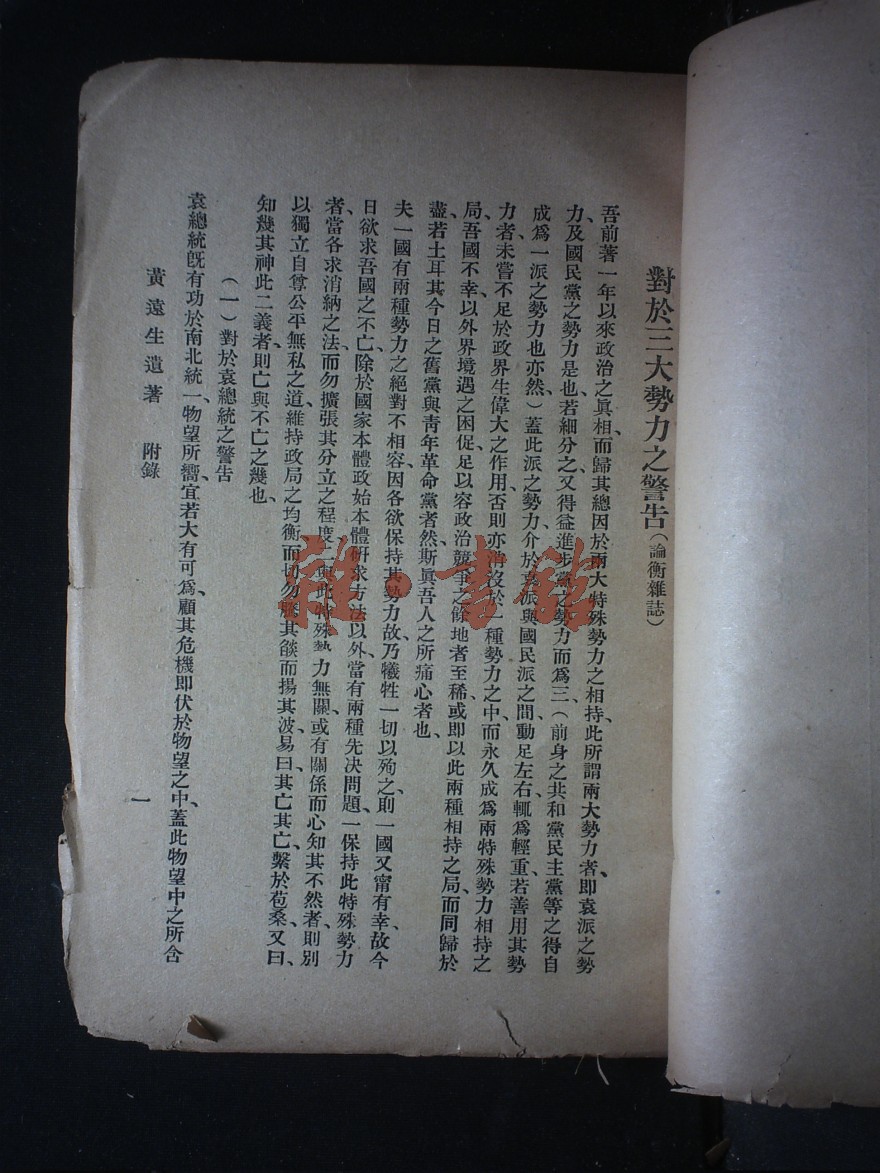 對於三大勢力之警告(論衡雜誌)
吾前著一年以來政治之眞相而歸其總因於兩大特殊勢力之相持、此所謂兩大勢力者、即袁派之勢
力、及國民黨之勢力是也、若細分之、又得益進步黨之勢力而爲三(前身之共和黨民主黨等之得自
成爲一派之勢力也亦然)蓋此派之勢力介於袁派與國民派之間、動足左右、輒爲輕重、若善用其勢
力者、未嘗不足於政界生偉大之作用、否則亦消沒於一種勢力之中、而永久成爲兩特殊勢力相持之
局、吾國不幸以外界境遇之困促、足以容政治競爭之餘地者至稀、或即以此兩種相持之局、而同歸於
盡、若土耳其今日之舊黨與靑年革命黨者然、斯眞吾人之所痛心者也、
夫一國有兩種勢力之絕對不相容、因各欲保持其勢力故、乃犧牲一切以殉之、則一國又甯有幸、故今
日欲求吾國之不亡、除於國家本體政始本體研求方法以外、當有兩種先決問題、一保持此特殊勢力
者、當各求消納之法、而勿擴張其分立之程度、二與此特殊勢力無關、或有關係而心知其不然者、則別
以獨立自尊公平無私之道、維持政局之均衡、而切勿騰其燄而揚其波、易曰、其亡其亡、繫於苞桑、又曰、
知幾其神、此二義者、則亡與不亡之幾也、
(一)對於袁總統之警告
袁總統旣有功於南北統一、物望所嚮、宜若大有可爲、顧其危機即伏於物望之中、蓋此物望中之所含
黃遠生遺著 附錄
一
雜·書館